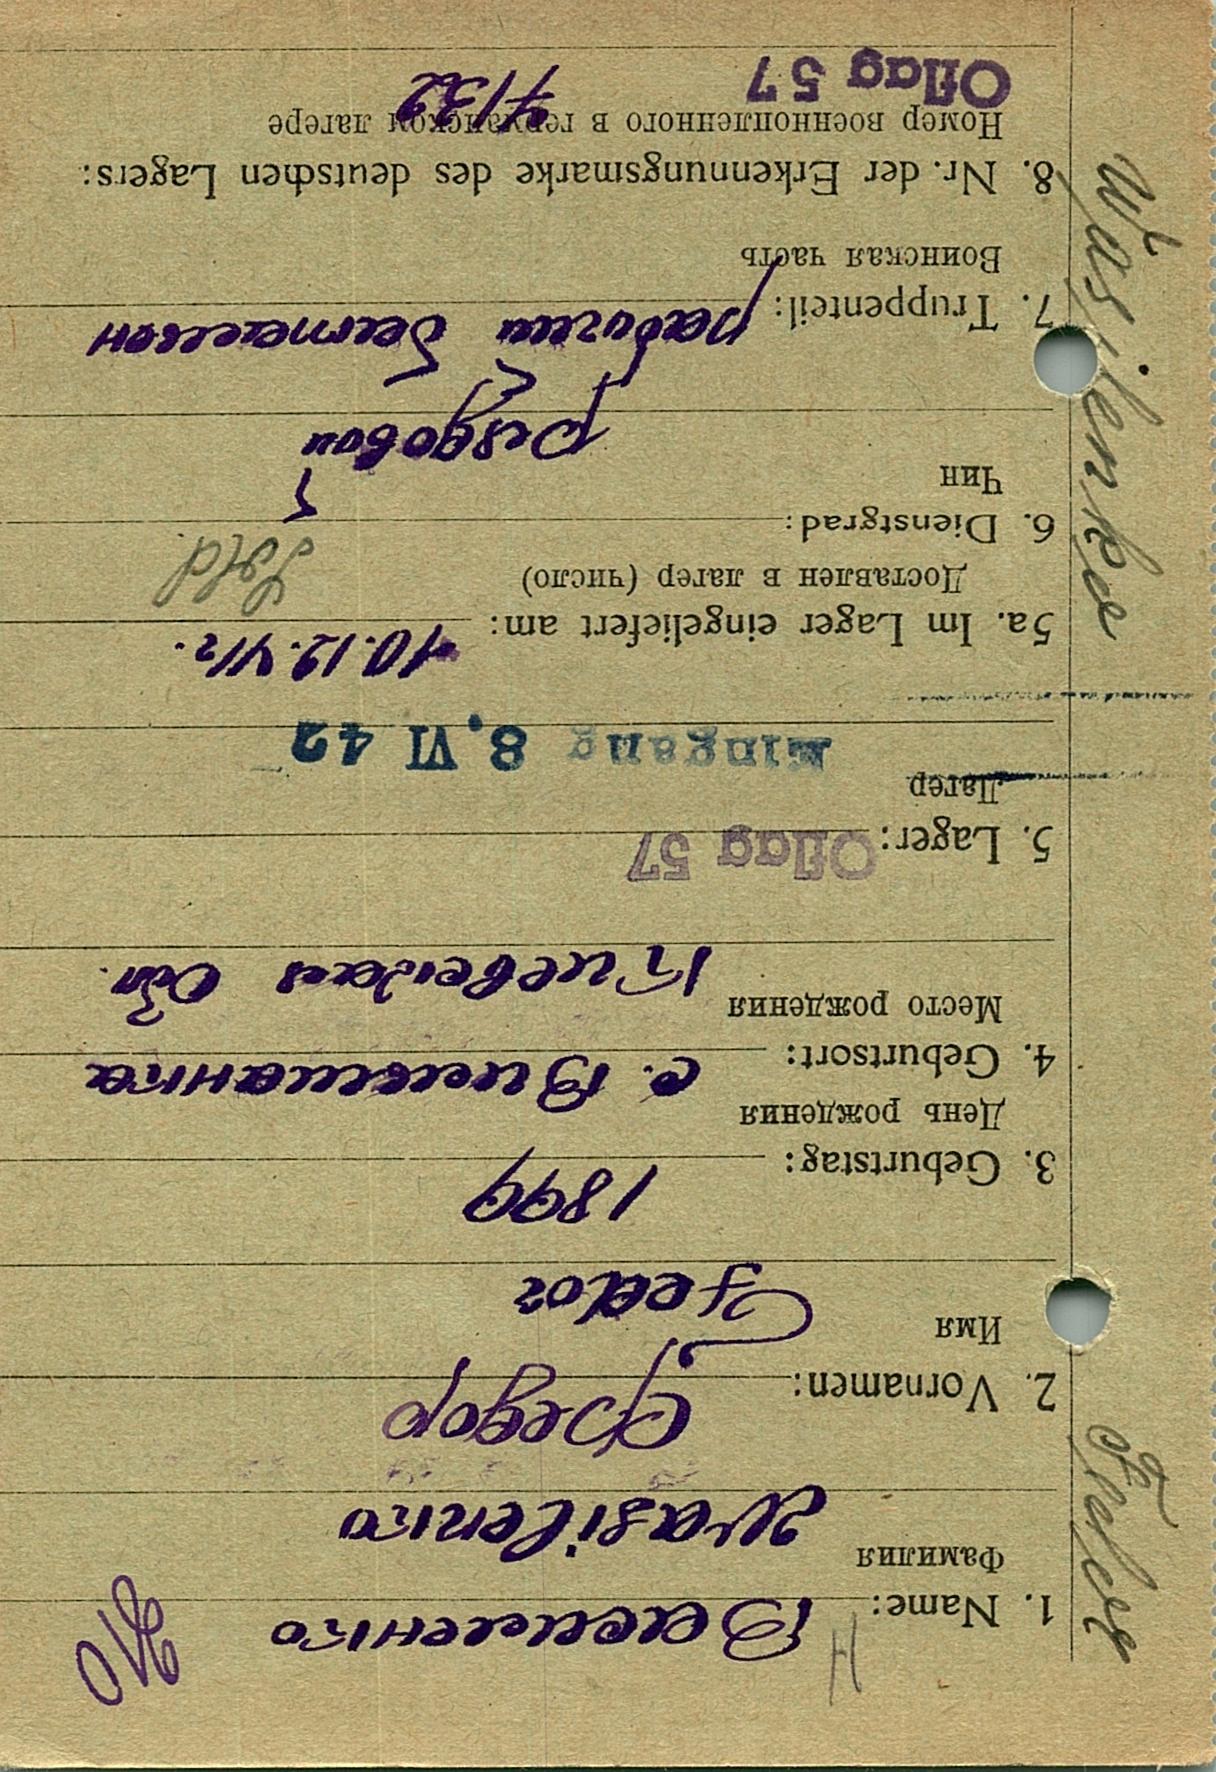 H
1. Name: Василенко
Фамилия
Wasilenko
2. Vornamen: Федор
Имя
Fedor
3. Geburtstag: 1899
День рождения
4. Geburtsort: с. Вильшанка
Место рождения
Киевская Обл.
5. Lager: Oflag 57
Лагерь
Eingang 8. VI 42
5a. Im Lager eingeliefert am: 10.12.41г.
Доставлен в лагер (число)
Sold.
6. Dienstgrad:
Чин
рядовой
7. Truppenteil: рабочий батальон
Воинская часть
8. Nr. der Erkennungsmarke des deutschen Lagers:
Номер военнопленного в германском лагере
7132
Oflag 57
Fedor
Wasilenko